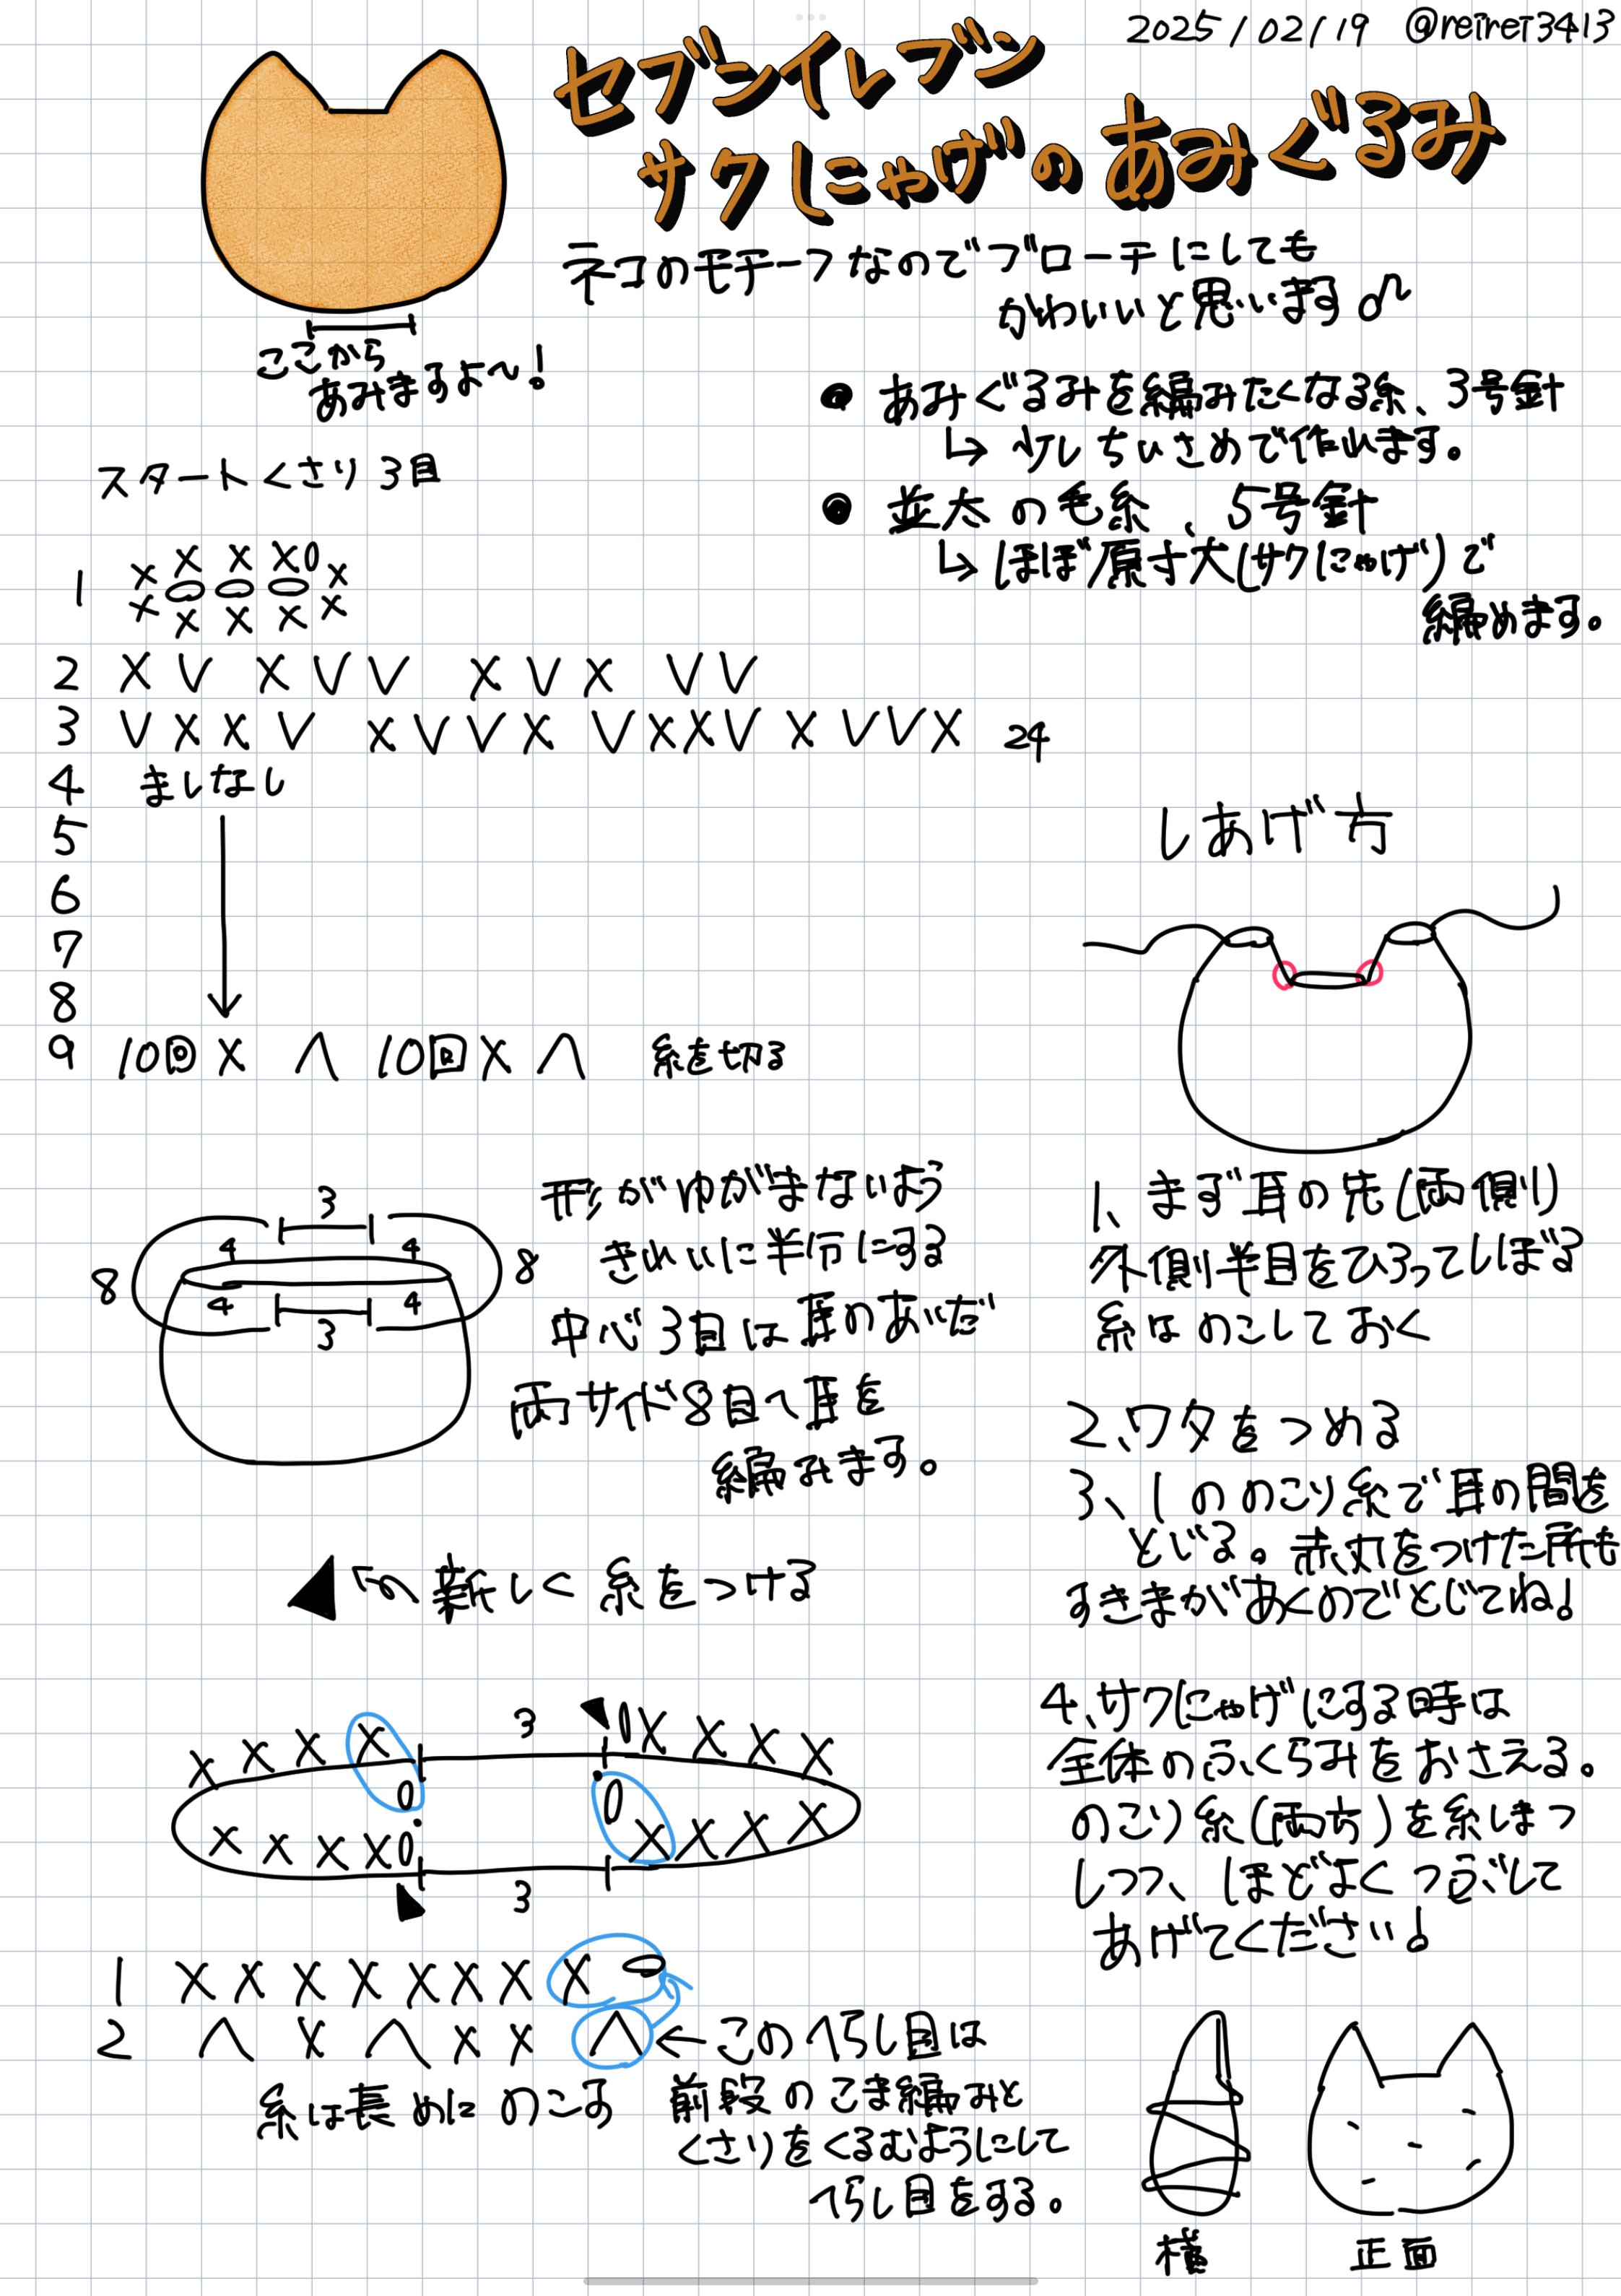 2025/02/19 @reirei3413
セブンイレブン
サクにゃげのあみぐるみ
ネコのモチーフなのでブローチにしても
かわいいと思います♪
ここから
あみますよ〜!
● あみぐるみを編みたくなる糸、3号針
↳ 少しちいさめで作れます。
● 並太の毛糸、5号針
↳ ほぼ原寸大(サクにゃげ)で
編めます。
スタートくさり3目
X X X0
1 X X
X X
X X X
2 X V X V V X V X V V
3 V X X V X V V X V X X V X V V X 24
4 ましなし
5
6
7
8
9 10回 X ∧ 10回 X ∧ 糸を切る
3
4 4
8 8
4 4
3
形がゆがまないよう
きれいに半分にする
中心3目は耳のあいだ
両サイド8目へ耳を
編みます。
▲ 新しく糸をつける
X X X X 3 0X X X X
0 0
X X X X0 X X X X
3
1 X X X X X X X X
2 ∧ X ∧ X X ∧ ← このへらし目は
前段のこま編みと
くさりをくるむようにして
へらし目をする。
糸は長めにのこす
しあげ方
1、まず耳の先(両側)
外側半目をひろってしぼる
糸はのこしておく
2、ワタをつめる
3、1ののこり糸で耳の間を
とじる。赤丸をつけた所も
すきまがあくのでとじてね!
4、サクにゃげにする時は
全体のふくらみをおさえる。
のこり糸(両方)を糸しまつ
しつつ、ほどよくつぶして
あげてください!
横 正面